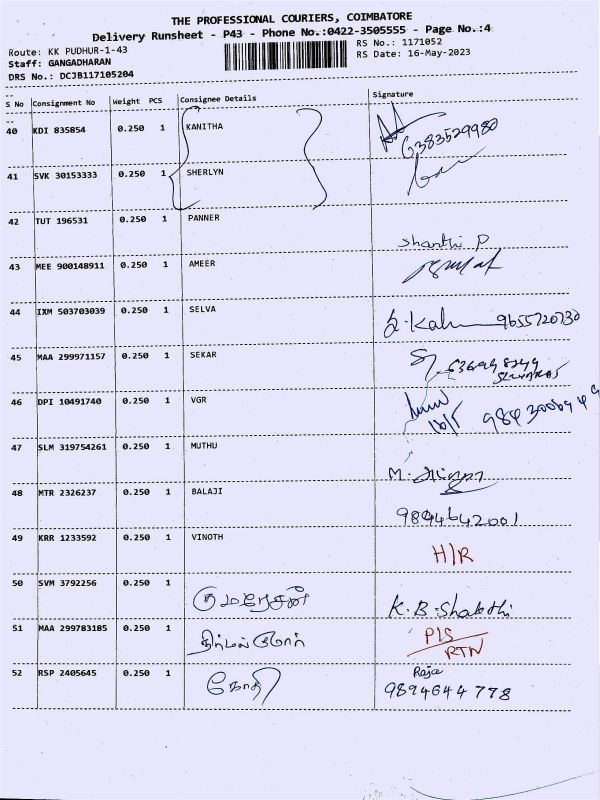 THE PROFESSIONAL COURIERS, COIMBATORE
Delivery Runsheet - P43 - Phone No.:0422-3505555 - Page No.:4
Route: KK PUDHUR-1-43
RS No.: 1171052
Staff: GANGADHARAN
RS Date: 16-May-2023
DRS No.: DCJB117105204
S No Consignment No Weight PCS Consignee Details Signature
40 KDI 835854 0.250 1 KANITHA
6383529980
41 SVK 30153333 0.250 1 SHERLYN
42 TUT 196531 0.250 1 PANNER
Shanthi P
43 MEE 900148911 0.250 1 AMEER
44 IXM 503703039 0.250 1 SELVA
9655720730
45 MAA 299971157 0.250 1 SEKAR
46 DPI 10491740 0.250 1 VGR
16/5
47 SLM 319754261 0.250 1 MUTHU
48 MTR 2326237 0.250 1 BALAJI
9894642001
49 KRR 1233592 0.250 1 VINOTH
H/R
50 SVM 3792256 0.250 1
குமரேசன் K.B.Shakthi
51 MAA 299783185 0.250 1
P/S
RTN
52 RSP 2405645 0.250 1
Raja
9894644778